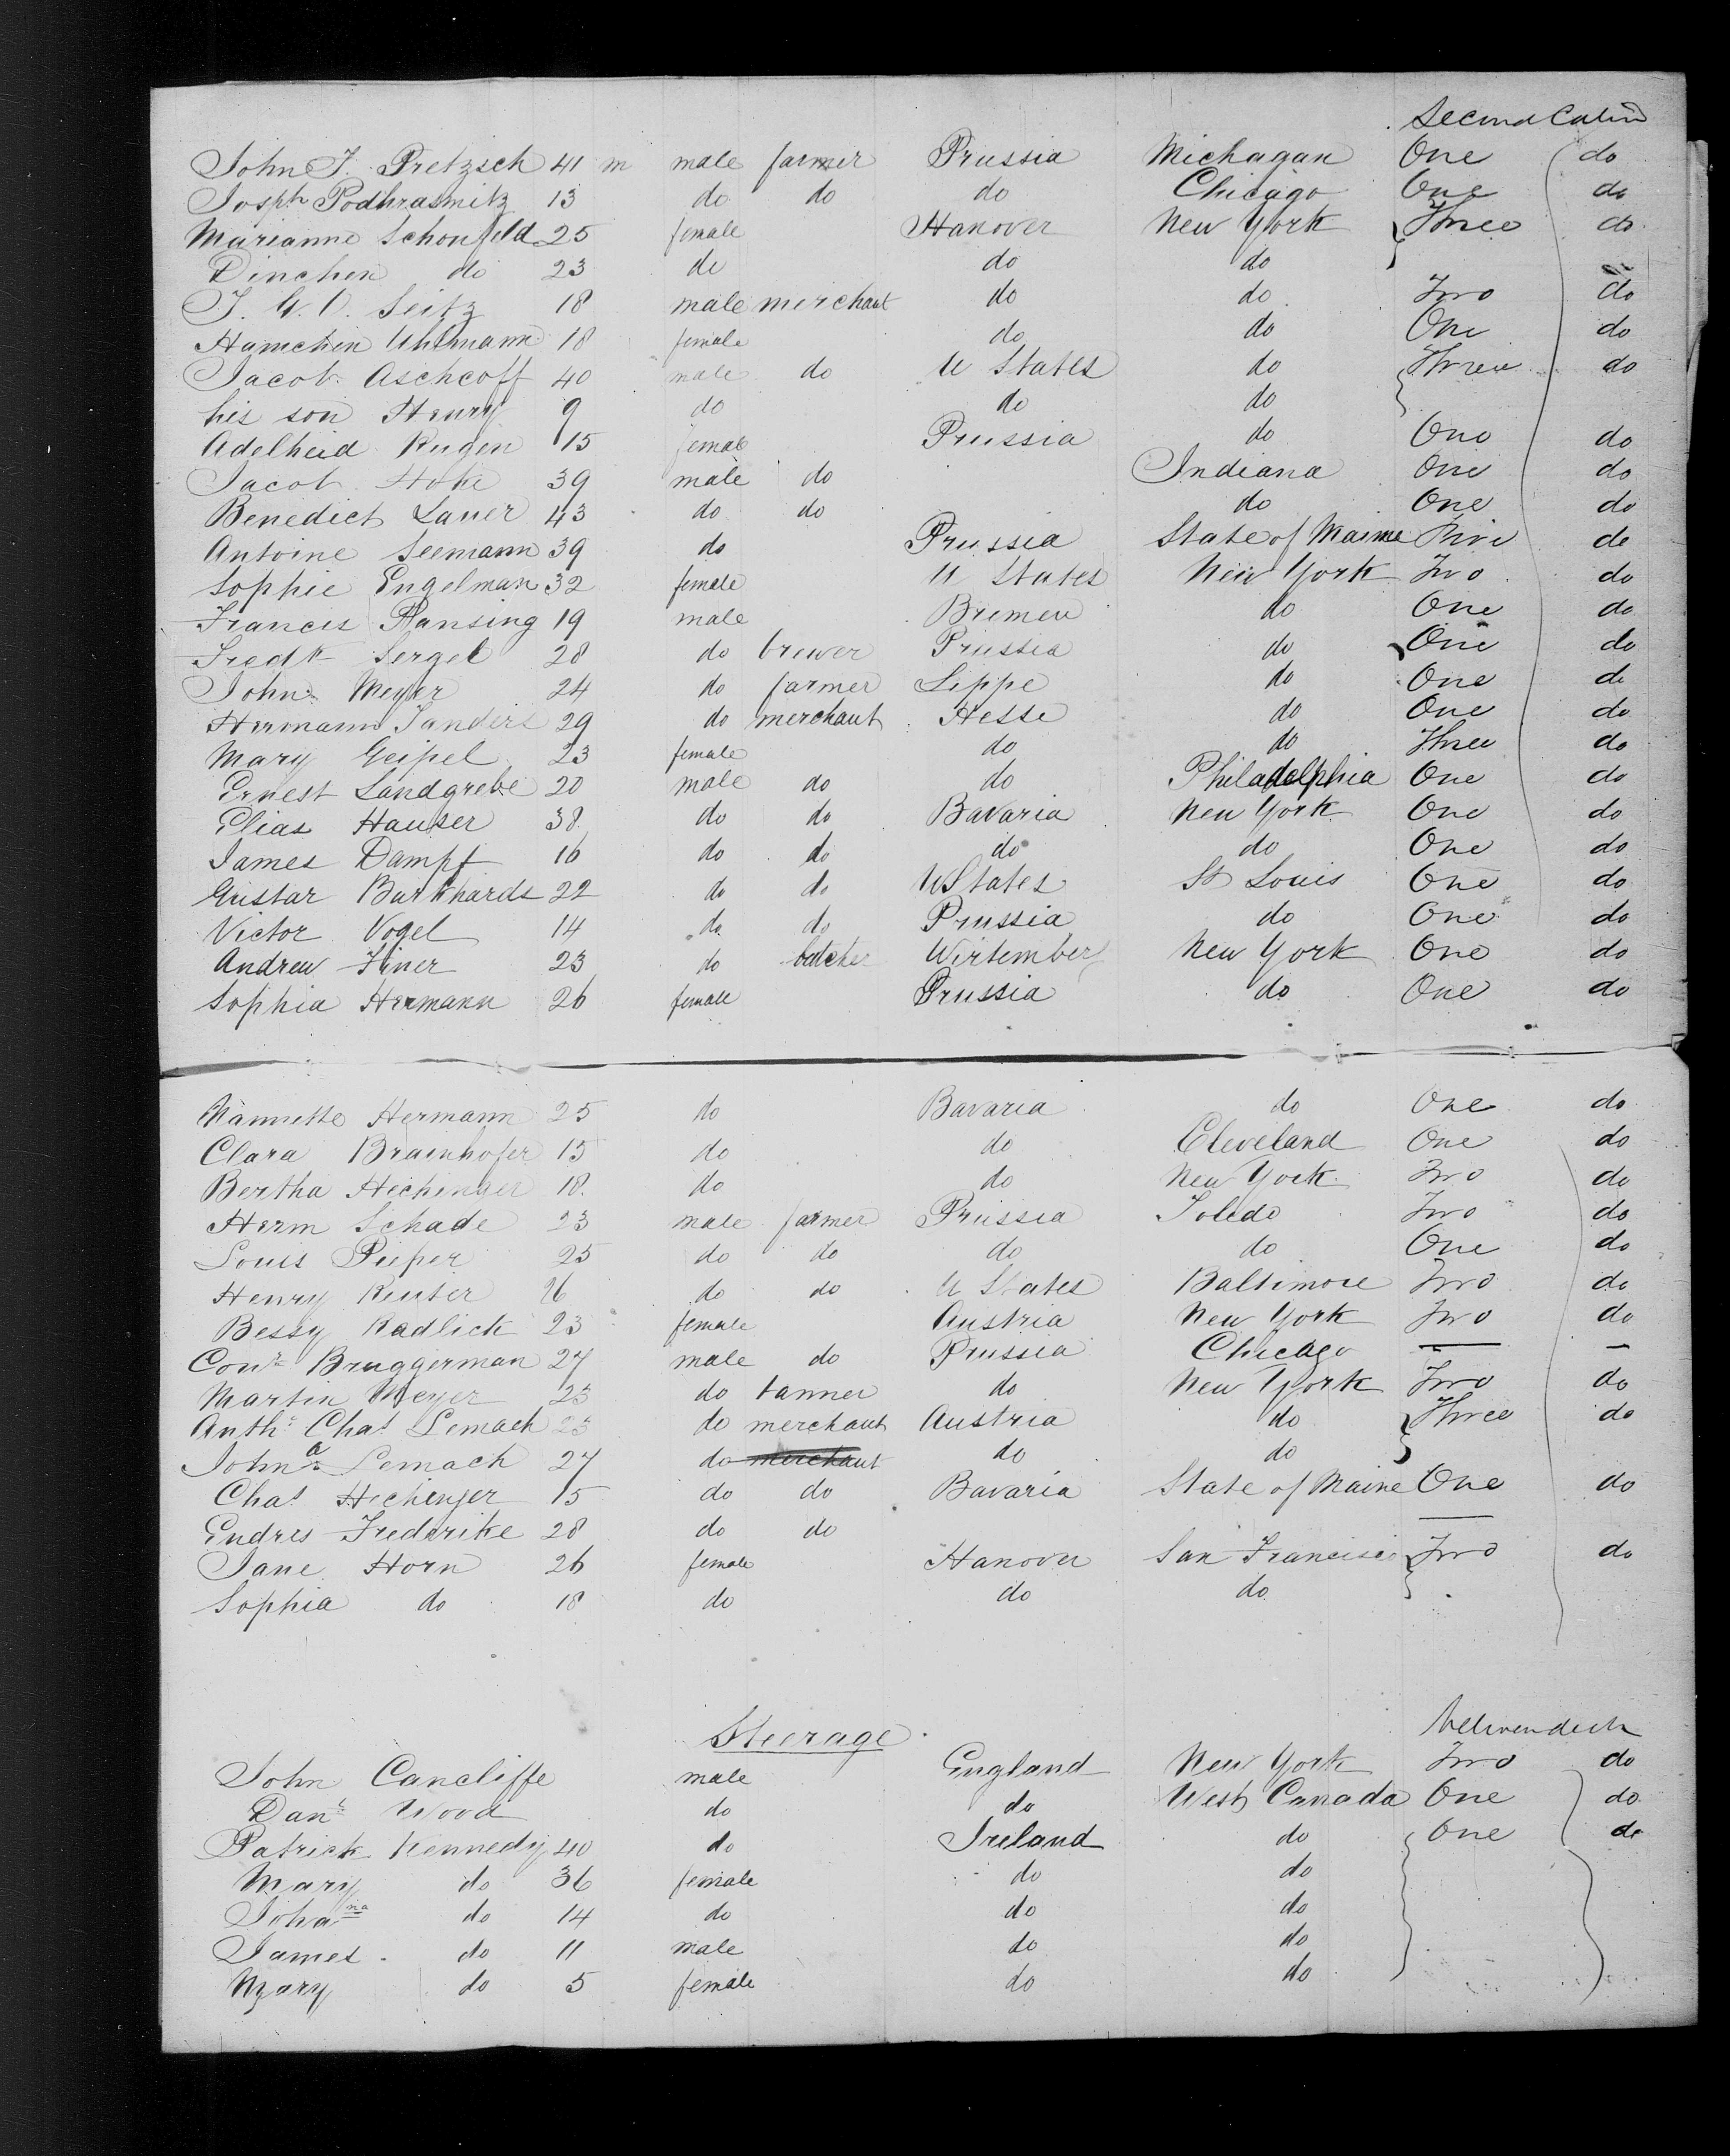 Second Cabin
John J. Pretzsch 41 m male farmer Prussia Michagan One do
Josph Podhrasnitz 13 do do do Chicago One do
Marianne Schonfeld 25 female Hanover New York Three do
Dinchen do 23 do do do
J. G. O. Seitz 18 male merchant do do Two do
Hamchen Uhlmann 18 female do do One do
Jacob Aschcoff 40 male do U States do Three do
his son Henry 9 do do do
Adelheid Rugen 15 female Prussia do One do
Jacob 39 male do Indiana One do
Benedict Lauer 43 do do do One do
Antoine Seemann 39 do Prussia State of Maine Five do
Sophie Engelman 32 female U States New York Two do
Francis Ransing 19 male Bremen do One do
Fredk Sergel 28 do brewer Prussia do One do
John Meyer 24 do farmer Lippe do One do
Hermann Sanders 29 do merchant Hesse do One do
Mary Geipel 23 female do do Three do
Ernest Landgrebe 20 male do do Philadelphia One do
Elias Hauser 38 do do Bavaria New York One do
James Dampf 16 do do do do One do
Gustar Burkhards 22 do do U States St Louis One do
Victor Vogel 14 do do Prussia do One do
Andrew Finer 23 do butcher Wirtemberg New York One do
Sophia Hermann 26 female Prussia do One do
Nannette Hermann 25 do Bavaria do One do
Clara Braunhofer 15 do do Cleveland One do
Bertha Hechinger 18 do do New York Two do
Herm Schade 23 male farmer Prussia Toledo Two do
Louis Pieper 25 do do do do One do
Henry Reuter 26 do do U States Baltimore Two do
Bessy Radlick 23 female Austria New York Two do
Conr Bruggerman 27 male do Prussia Chicago — —
Martin Meyer 23 do tanner do New York Two do
Anth: Chas Lemach 23 do merchant Austria do Three do
John a Lemach 27 do merchant do do
Chas Hechinger 15 do do Bavaria State of Maine One do
Endres Frederike 28 do do —
Jane Horn 26 female Hanover San Francisco Two do
Sophia do 18 do do do
Steerage
Betweendeck
John Cancliffe male England New York Two do
Danl Wood do do West Canada One do
Patrick Kennedy 40 do Ireland do One do
Mary do 36 female do do
Johana do 14 do do do
James do 11 male do do
Mary do 5 female do do